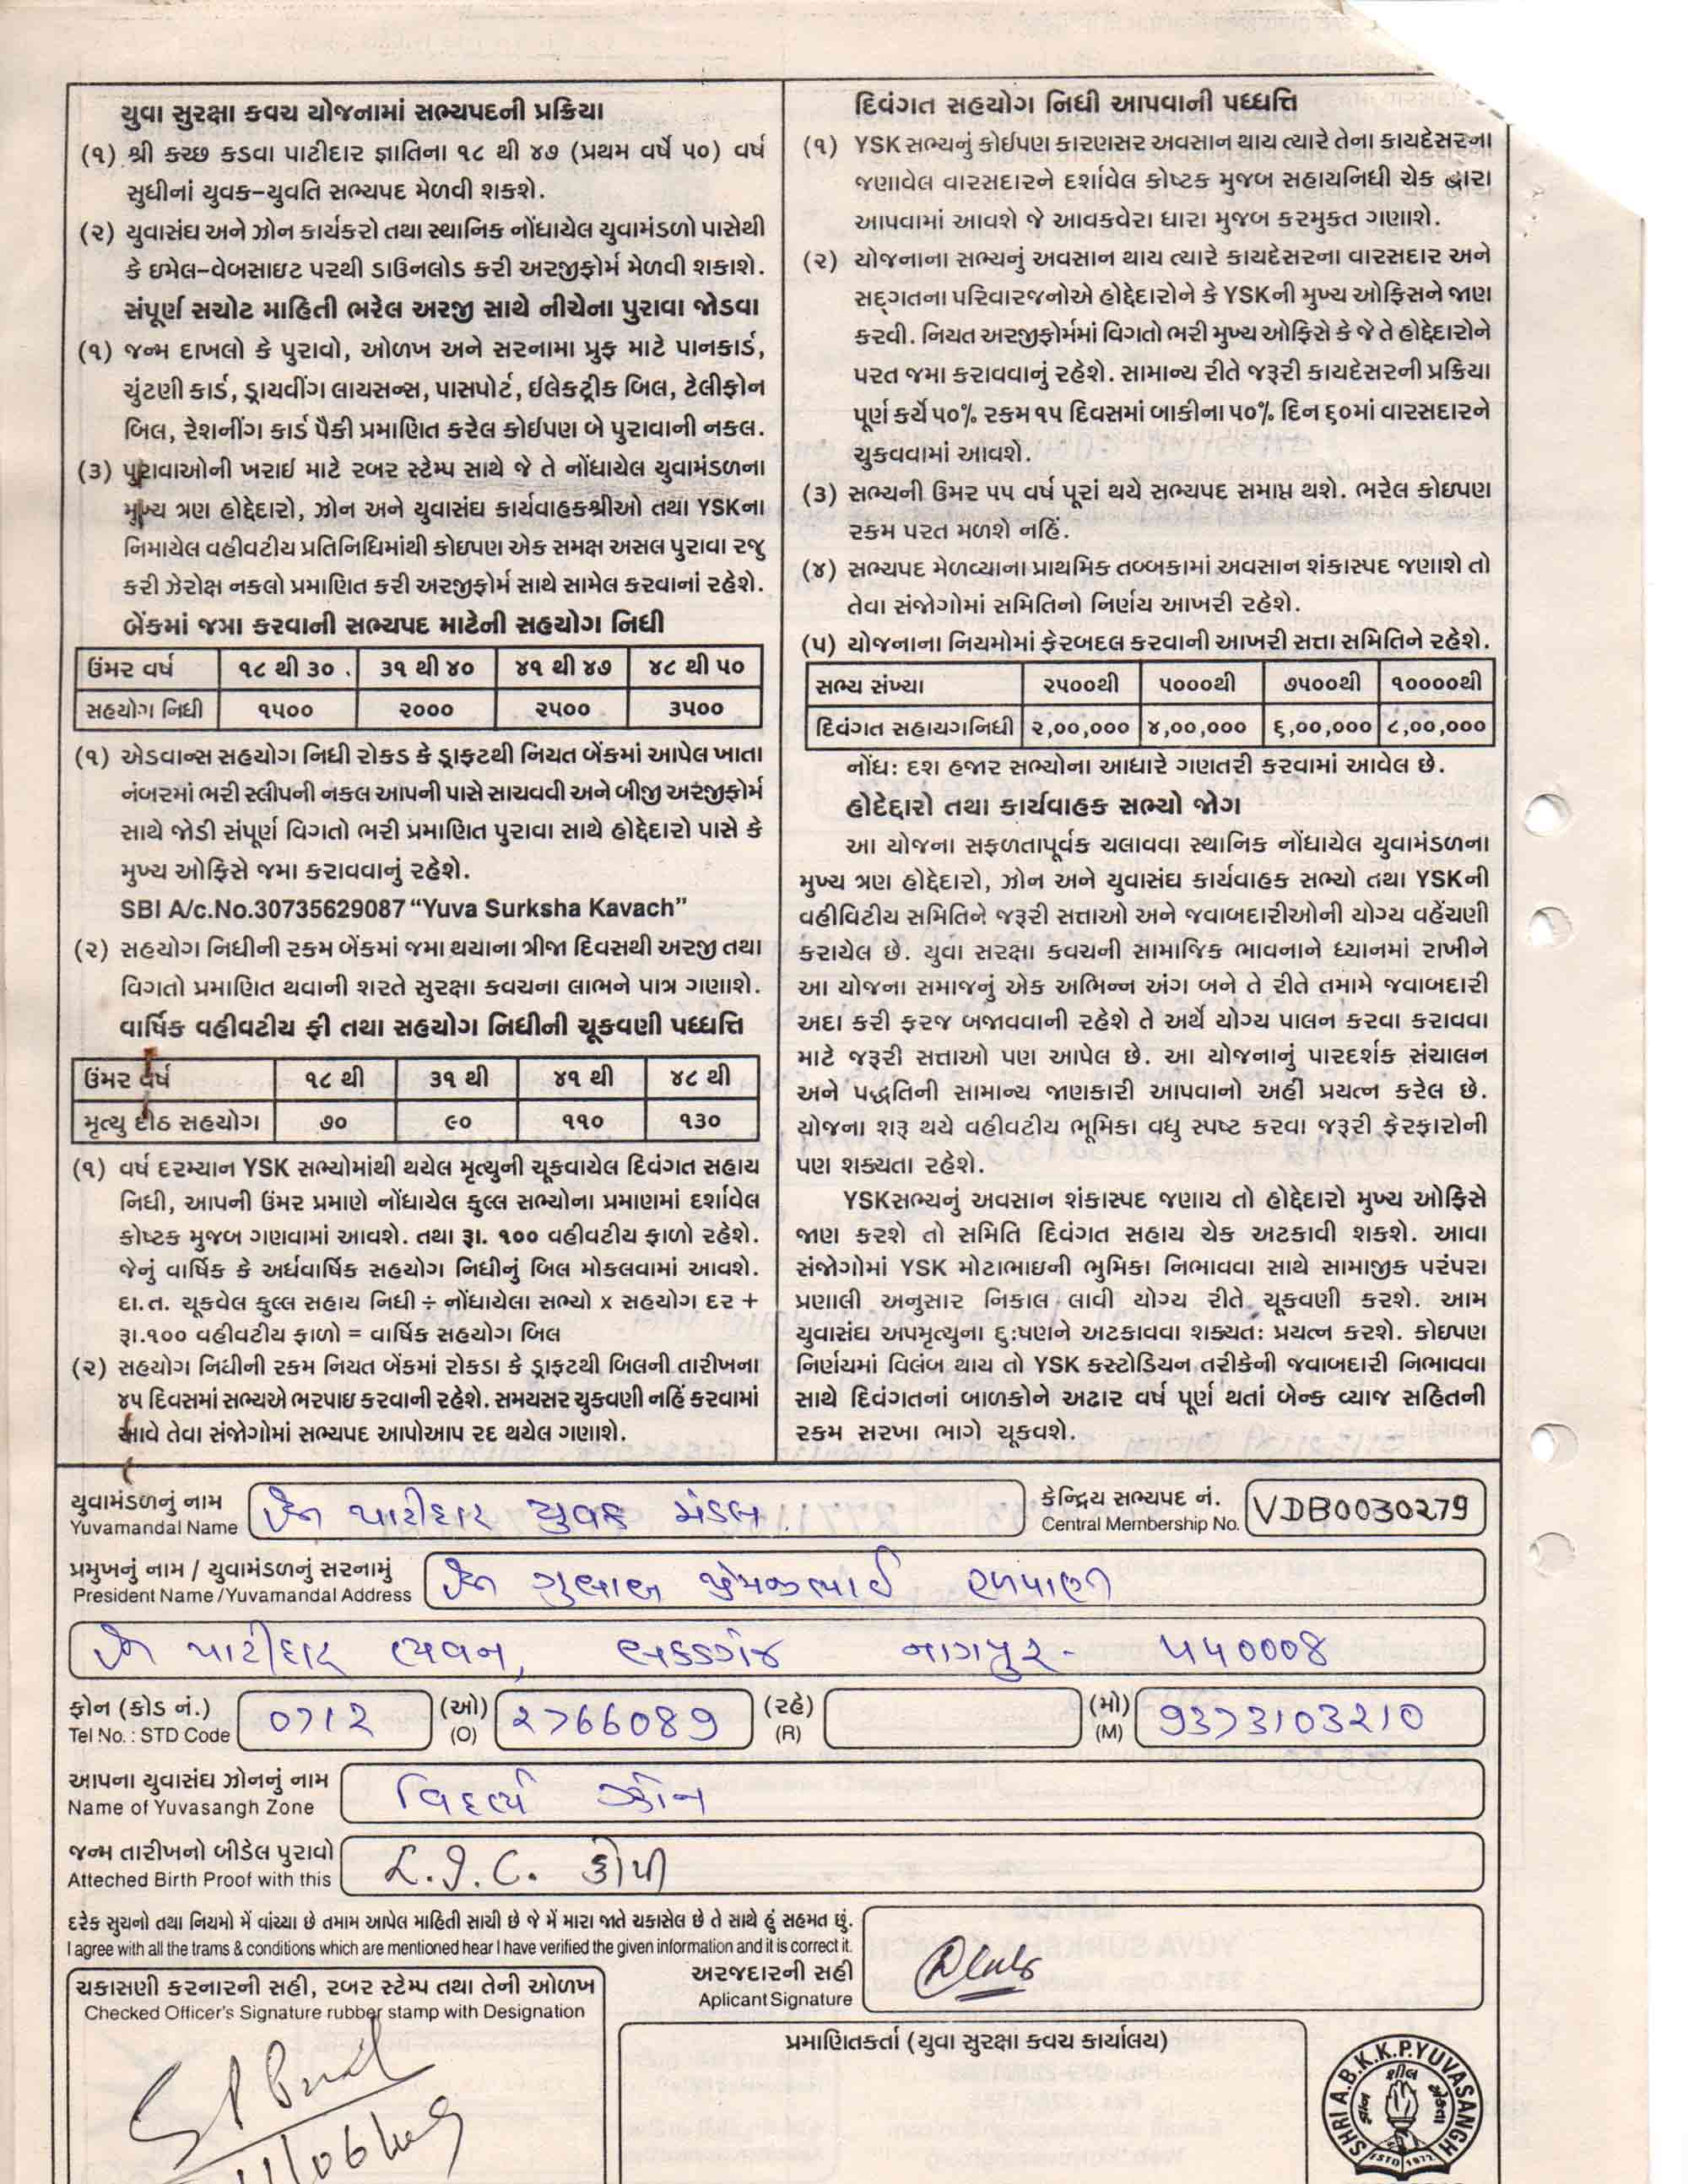 યુવા સુરક્ષા કવચ યોજનામાં સભ્યપદની પ્રક્રિયા
(૧) શ્રી કચ્છ કડવા પાટીદાર જ્ઞાતિના ૧૮ થી ૪૭ (પ્રથમ વર્ષે ૫૦) વર્ષ
સુધીનાં યુવક-યુવતિ સભ્યપદ મેળવી શકશે.
(૨) યુવાસંઘ અને ઝોન કાર્યકરો તથા સ્થાનિક નોંધાયેલ યુવામંડળો પાસેથી
કે ઇમેલ-વેબસાઇટ પરથી ડાઉનલોડ કરી અરજીફોર્મ મેળવી શકાશે.
સંપૂર્ણ સચોટ માહિતી ભરેલ અરજી સાથે નીચેના પુરાવા જોડવા
(૧) જન્મ દાખલો કે પુરાવો, ઓળખ અને સરનામા પ્રુફ માટે પાનકાર્ડ,
ચુંટણી કાર્ડ, ડ્રાયવીંગ લાયસન્સ, પાસપોર્ટ, ઈલેક્ટ્રીક બિલ, ટેલીફોન
બિલ, રેશનીંગ કાર્ડ પૈકી પ્રમાણિત કરેલ કોઈપણ બે પુરાવાની નકલ.
(૩) પુરાવાઓની ખરાઈ માટે રબર સ્ટેમ્પ સાથે જે તે નોંધાયેલ યુવામંડળના
મુખ્ય ત્રણ હોદ્દેદારો, ઝોન અને યુવાસંઘ કાર્યવાહકશ્રીઓ તથા YSKના
નિમાયેલ વહીવટીય પ્રતિનિધિમાંથી કોઇપણ એક સમક્ષ અસલ પુરાવા રજુ
કરી ઝેરોક્ષ નકલો પ્રમાણિત કરી અરજીફોર્મ સાથે સામેલ કરવાનાં રહેશે.
બેંકમાં જમા કરવાની સભ્યપદ માટેની સહયોગ નિધી
ઉંમર વર્ષ ૧૮ થી ૩૦ ૩૧ થી ૪૦ ૪૧ થી ૪૭ ૪૮ થી ૫૦
સહયોગ નિધી ૧૫૦૦ ૨૦૦૦ ૨૫૦૦ ૩૫૦૦
(૧) એડવાન્સ સહયોગ નિધી રોકડ કે ડ્રાફ્ટથી નિયત બેંકમાં આપેલ ખાતા
નંબરમાં ભરી સ્લીપની નકલ આપની પાસે સાચવવી અને બીજી અરજીફોર્મ
સાથે જોડી સંપૂર્ણ વિગતો ભરી પ્રમાણિત પુરાવા સાથે હોદ્દેદારો પાસે કે
મુખ્ય ઓફિસે જમા કરાવવાનું રહેશે.
SBI A/c.No.30735629087 “Yuva Surksha Kavach”
(૨) સહયોગ નિધીની રકમ બેંકમાં જમા થયાના ત્રીજા દિવસથી અરજી તથા
વિગતો પ્રમાણિત થવાની શરતે સુરક્ષા કવચના લાભને પાત્ર ગણાશે.
વાર્ષિક વહીવટીય ફી તથા સહયોગ નિધીની ચૂકવણી પધ્ધતિ
ઉંમર વર્ષ ૧૮ થી ૩૧ થી ૪૧ થી ૪૮ થી
મૃત્યુ દીઠ સહયોગ ૭૦ ૯૦ ૧૧૦ ૧૩૦
(૧) વર્ષ દરમ્યાન YSK સભ્યોમાંથી થયેલ મૃત્યુની ચૂકવાયેલ દિવંગત સહાય
નિધી, આપની ઉંમર પ્રમાણે નોંધાયેલ કુલ્લ સભ્યોના પ્રમાણમાં દર્શાવેલ
કોષ્ટક મુજબ ગણવામાં આવશે. તથા રૂા. ૧૦૦ વહીવટીય ફાળો રહેશે.
જેનું વાર્ષિક કે અર્ધવાર્ષિક સહયોગ નિધીનું બિલ મોકલવામાં આવશે.
દા.ત. ચૂકવેલ કુલ્લ સહાય નિધી ÷ નોંધાયેલા સભ્યો x સહયોગ દર +
રૂા.૧૦૦ વહીવટીય ફાળો = વાર્ષિક સહયોગ બિલ
(૨) સહયોગ નિધીની રકમ નિયત બેંકમાં રોકડા કે ડ્રાફટથી બિલની તારીખના
૪૫ દિવસમાં સભ્યએ ભરપાઇ કરવાની રહેશે. સમયસર ચુકવણી નહિં કરવામાં
આવે તેવા સંજોગોમાં સભ્યપદ આપોઆપ રદ થયેલ ગણાશે.
દિવંગત સહયોગ નિધી આપવાની પધ્ધત્તિ
(૧) YSK સભ્યનું કોઈપણ કારણસર અવસાન થાય ત્યારે તેના કાયદેસરના
જણાવેલ વારસદારને દર્શાવેલ કોષ્ટક મુજબ સહાયનિધી ચેક દ્વારા
આપવામાં આવશે જે આવકવેરા ધારા મુજબ કરમુકત ગણાશે.
(૨) યોજનાના સભ્યનું અવસાન થાય ત્યારે કાયદેસરના વારસદાર અને
સદ્‌ગતના પરિવારજનોએ હોદ્દેદારોને કે YSKની મુખ્ય ઓફિસને જાણ
કરવી. નિયત અરજીફોર્મમાં વિગતો ભરી મુખ્ય ઓફિસે કે જે તે હોદ્દેદારોને
પરત જમા કરાવવાનું રહેશે. સામાન્ય રીતે જરૂરી કાયદેસરની પ્રક્રિયા
પૂર્ણ કર્યે ૫૦% રકમ ૧૫ દિવસમાં બાકીના ૫૦% દિન ૬૦માં વારસદારને
ચુકવવામાં આવશે.
(૩) સભ્યની ઉમર ૫૫ વર્ષ પૂરાં થયે સભ્યપદ સમાપ્ત થશે. ભરેલ કોઇપણ
રકમ પરત મળશે નહિં.
(૪) સભ્યપદ મેળવ્યાના પ્રાથમિક તબ્બકામાં અવસાન શંકાસ્પદ જણાશે તો
તેવા સંજોગોમાં સમિતિનો નિર્ણય આખરી રહેશે.
(૫) યોજનાના નિયમોમાં ફેરબદલ કરવાની આખરી સત્તા સમિતિને રહેશે.
સભ્ય સંખ્યા ૨૫૦૦થી ૫૦૦૦થી ૭૫૦૦થી ૧૦૦૦૦થી
દિવંગત સહાયગનિધી ૨,૦૦,૦૦૦ ૪,૦૦,૦૦૦ ૬,૦૦,૦૦૦ ૮,૦૦,૦૦૦
નોંધ: દશ હજાર સભ્યોના આધારે ગણતરી કરવામાં આવેલ છે.
હોદેદ્દારો તથા કાર્યવાહક સભ્યો જોગ
આ યોજના સફળતાપૂર્વક ચલાવવા સ્થાનિક નોંધાયેલ યુવામંડળના
મુખ્ય ત્રણ હોદ્દેદારો, ઝોન અને યુવાસંઘ કાર્યવાહક સભ્યો તથા YSKની
વહીવિટીય સમિતિને જરૂરી સત્તાઓ અને જવાબદારીઓની યોગ્ય વહેંચણી
કરાયેલ છે. યુવા સરક્ષા કવચની સામાજિક ભાવનાને ધ્યાનમાં રાખીને
આ યોજના સમાજનું એક અભિન્ન અંગ બને તે રીતે તમામે જવાબદારી
અદા કરી ફરજ બજાવવાની રહેશે તે અર્થે યોગ્ય પાલન કરવા કરાવવા
માટે જરૂરી સત્તાઓ પણ આપેલ છે. આ યોજનાનું પારદર્શક સંચાલન
અને પદ્ધતિની સામાન્ય જાણકારી આપવાનો અહીં પ્રયત્ન કરેલ છે.
યોજના શરૂ થયે વહીવટીય ભૂમિકા વધુ સ્પષ્ટ કરવા જરૂરી ફેરફારોની
પણ શક્યતા રહેશે.
YSKસભ્યનું અવસાન શંકાસ્પદ જણાય તો હોદ્દેદારો મુખ્ય ઓફિસે
જાણ કરશે તો સમિતિ દિવંગત સહાય ચેક અટકાવી શકશે. આવા
સંજોગોમાં YSK મોટાભાઇની ભુમિકા નિભાવવા સાથે સામાજીક પરંપરા
પ્રણાલી અનુસાર નિકાલ લાવી યોગ્ય રીતે ચૂકવણી કરશે. આમ
યુવાસંઘ અપમૃત્યુના દુઃષણને અટકાવવા શક્યતઃ પ્રયત્ન કરશે. કોઇપણ
નિર્ણયમાં વિલંબ થાય તો YSK કસ્ટોડિયન તરીકેની જવાબદારી નિભાવવા
સાથે દિવંગતનાં બાળકોને અઢાર વર્ષ પૂર્ણ થતાં બેન્ક વ્યાજ સહિતની
રકમ સરખા ભાગે ચૂકવશે.
યુવામંડળનું નામ શ્રી પાટીદાર યુવક મંડલ કેન્દ્રિય સભ્યપદ નં.
Yuvamandal Name Central Membership No. VDB0030279
પ્રમુખનું નામ / યુવામંડળનું સરનામું
President Name /Yuvamandal Address શ્રી ગુલાબ પ્રેમજીભાઈ
શ્રી પાટીદાર ભવન, લકડગંજ નાગપુર - ૫૫૦૦૦8
ફોન (કોડ નં.) 0712 (ઓ) ૨766089 (રહે) (મો) 9373103210
Tel No. : STD Code (O) (R) (M)
આપના યુવાસંઘ ઝોનનું નામ વિદર્ભ ઝોન
Name of Yuvasangh Zone
જન્મ તારીખનો બીડેલ પુરાવો L.I.C. કોપી
Atteched Birth Proof with this
દરેક સુચનો તથા નિયમો મેં વાંચ્યા છે તમામ આપેલ માહિતી સાચી છે જે મેં મારા જાતે ચકાસેલ છે તે સાથે હું સહમત છું.
I agree with all the trams & conditions which are mentioned hear I have verified the given information and it is correct it.
અરજદારની સહી
Aplicant Signature
ચકાસણી કરનારની સહી, રબર સ્ટેમ્પ તથા તેની ઓળખ
Checked Officer's Signature rubber stamp with Designation
પ્રમાણિતકર્તા (યુવા સુરક્ષા કવચ કાર્યાલય)
SHRI A.B.K.K.P.YUVASANGH
શીલ
ESTD 1977